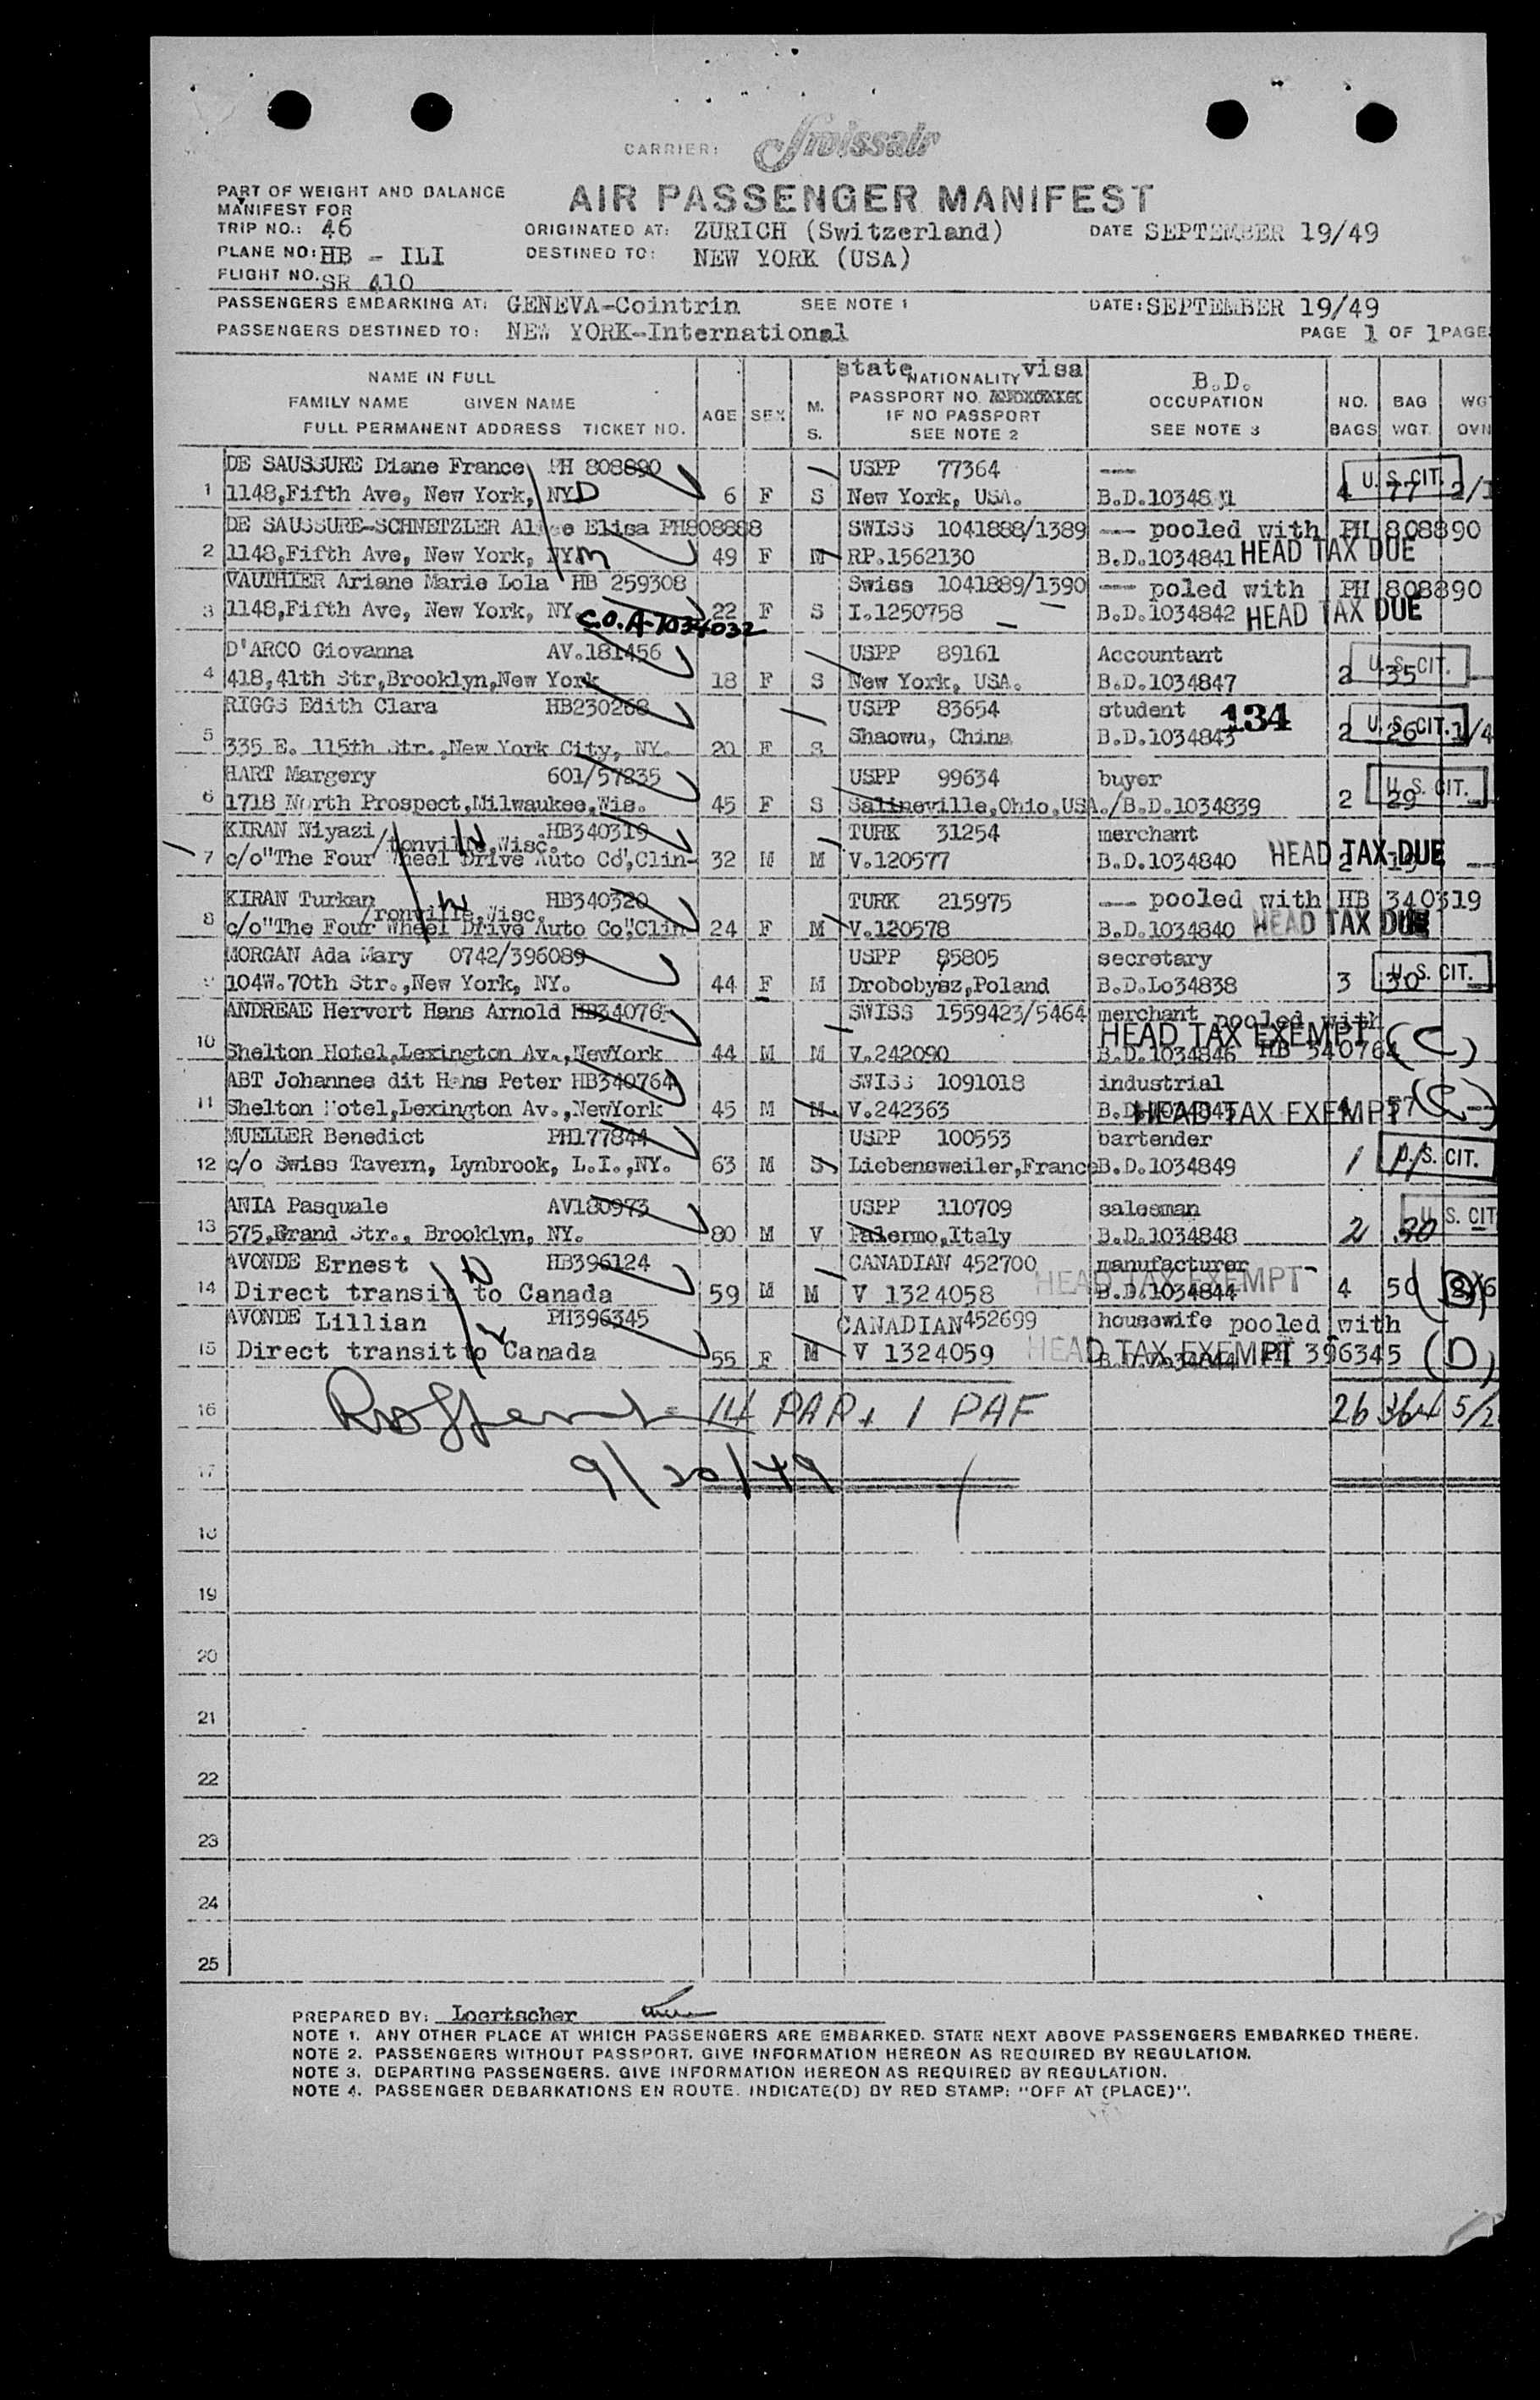 CARRIER: Swissair
PART OF WEIGHT AND BALANCE
MANIFEST FOR
AIR PASSENGER MANIFEST
TRIP NO.: 46 ORIGINATED AT: ZURICH (Switzerland) DATE SEPTEMBER 19/49
PLANE NO: HB - ILI DESTINED TO: NEW YORK (USA)
FLIGHT NO. SR 410
PASSENGERS EMBARKING AT: GENEVA-Cointrin SEE NOTE 1 DATE: SEPTEMBER 19/49
PASSENGERS DESTINED TO: NEW YORK-International PAGE 1 OF 1 PAGE
state visa
NAME IN FULL NATIONALITY B.D.
FAMILY NAME GIVEN NAME AGE SEX M. PASSPORT NO. OCCUPATION NO. BAG WGT
IF NO PASSPORT
FULL PERMANENT ADDRESS TICKET NO. S. SEE NOTE 2 SEE NOTE 3 BAGS WGT. OVN
DE SAUSSURE Diane France PH 808890 USPP 77364 --- U.S. CIT.
1 1148,Fifth Ave, New York, NY D 6 F S New York, USA. 4 77
DE SAUSSURE-SCHNETZLER Elisa PH808888 SWISS 1041888/1389 --- pooled with PH 808890
2 1148,Fifth Ave, New York, NY. m 49 F M RP.1562130 B.D.1034841 HEAD TAX DUE
VAUTHIER Ariane Marie Lola HB 259308 Swiss 1041889/1390 --- poled with PH 808890
3 1148,Fifth Ave, New York, NY. 22 F S I.1250758 B.D.1034842 HEAD TAX DUE
C.O.A-1034032
D'ARCO Giovanna AV.181456 USPP 89161 Accountant U.S. CIT.
4 418,41th Str,Brooklyn,New York 18 F S New York, USA. B.D.1034847 2 35
RIGGS Edith Clara HB230268 USPP 83654 student 134 U.S. CIT.
5 335 E. 115th Str.,New York City, NY. 20 F S Shaowu, China B.D.1034843 2 26 1/4
HART Margery 601/57235 USPP 99634 buyer U.S. CIT.
6 1718 North Prospect,Milwaukee,Wis. 45 F S Salineville,Ohio,USA./B.D.1034839 2 29
KIRAN Niyazi HB340319 TURK 31254 merchant
/tonville,Wisc.
7 c/o"The Four Wheel Drive Auto Co",Clin- 32 M M V.120577 B.D.1034840 HEAD TAX DUE 2
KIRAN Turkan HB340320 TURK 215975 --- pooled with HB 340319
/ronville,Wisc.
8 c/o"The Four Wheel Drive Auto Co",Clin- 24 F M V.120578 B.D.1034840 HEAD TAX DUE
MORGAN Ada Mary 0742/396089 USPP 85805 secretary U.S. CIT.
9 104W.70th Str.,New York, NY. 44 F M Drobobysz,Poland B.D.Lo34838 3 30
ANDREAE Hervert Hans Arnold SWISS 1559423/5464 merchant pooled with
HEAD TAX EXEMPT (C)
10 Shelton Hotel,Lexington Av.,NewYork 44 M M V.242090 B.D.1034846 HB 340764
ABT Johannes dit Hans Peter HB340764 SWISS 1091018 industrial
11 Shelton Hotel,Lexington Av.,NewYork 45 M M V.242363 HEAD TAX EXEMPT (C)
MUELLER Benedict PH177844 USPP 100553 bartender
12 c/o Swiss Tavern, Lynbrook, L.I.,NY. 63 M S Liebensweiler,France B.D.1034849 1 U.S. CIT.
ANIA Pasquale AV180973 USPP 110709 salesman U.S. CIT
13 575,Grand Str., Brooklyn, NY. 80 M V Palermo,Italy B.D.1034848 2 30
AVONDE Ernest HB396124 CANADIAN 452700 manufacturer
HEAD TAX EXEMPT
14 Direct transit to Canada 59 M M V 1324058 B.D.1034844 4 50
AVONDE Lillian PH396345 CANADIAN 452699 housewife pooled with
15 Direct transit to Canada 55 F M V 1324059 HEAD TAX EXEMPT PH 396345 (D)
16 14 PAP + 1 PAF 26 364 5/2
17 9/20/49
18
19
20
21
22
23
24
25
PREPARED BY: Loertscher
NOTE 1. ANY OTHER PLACE AT WHICH PASSENGERS ARE EMBARKED. STATE NEXT ABOVE PASSENGERS EMBARKED THERE.
NOTE 2. PASSENGERS WITHOUT PASSPORT. GIVE INFORMATION HEREON AS REQUIRED BY REGULATION.
NOTE 3. DEPARTING PASSENGERS. GIVE INFORMATION HEREON AS REQUIRED BY REGULATION.
NOTE 4. PASSENGER DEBARKATIONS EN ROUTE. INDICATE(D) BY RED STAMP: "OFF AT (PLACE)".